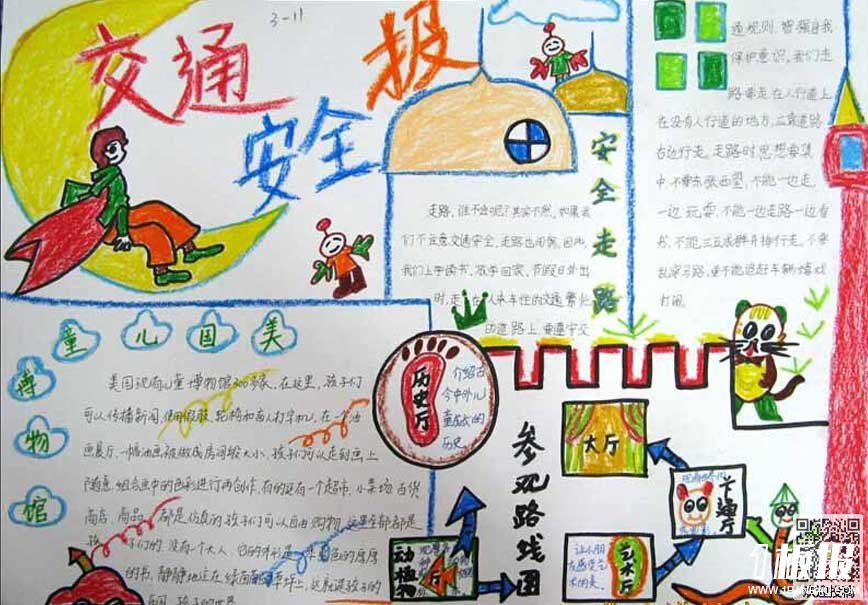 3-11
交通
安全
报
安全走路
走路，谁不会呢？其实不然，如果我
们不注意交通安全，走路也闯祸，因此，
我们上学读书、放学回家、节假日外出
时，走在人来车往的交通繁忙
的道路上，要遵守交
通规则，增强自我
保护意识，我们走
路要走在人行道上
在没有人行道的地方，应靠道路
右边行走，走路时思想要集
中，不要东张西望，不能一边走
一边玩耍，不能一边走路一边看
书，不能三五成群并排行走，不要
乱穿马路，更不能追赶车辆嬉戏
打闹。
美国儿童
博物馆
美国现有儿童博物馆300多家，在这里，孩子们
可以传播新闻，使用假肢、轮椅和盲人打字机，在一个油
画展厅，一幅油画被做成房间般大小，孩子们可以走到画上
随意组合画中的色彩进行再创作，有的还有一个超市，小菜场、百货
商店，商品都是仿真的孩子们可以自由购物，这里全部都是
孩子们的，没有一个大人
的书，静静地立在绿茵茵草坪上，这就是孩子的
孩子的世界
历史厅
介绍古
今中外儿
童成长的
历史
参观路线图
大厅
卡通厅
艺术厅
让小朋
友感受艺
术的美
动植物厅